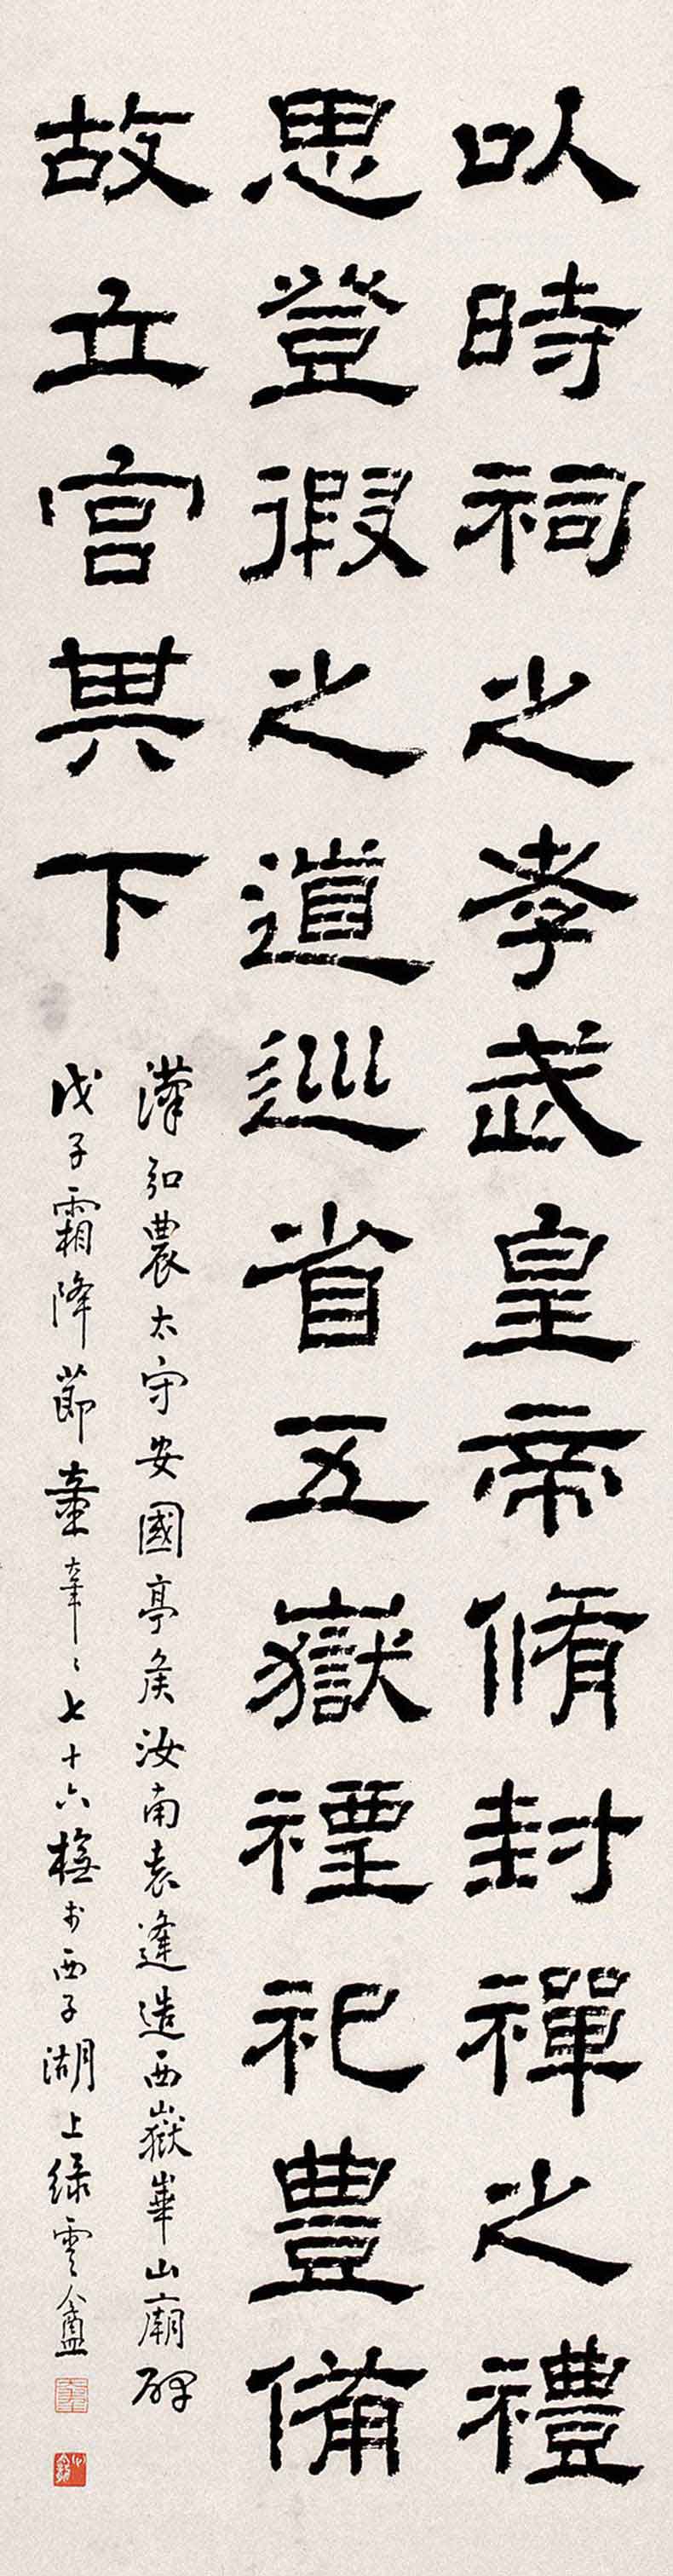 以時祠之孝武皇帝脩封禪之禮
思登徦之道巡省五嶽禋祀豊備
故立宫其下
漢弘農太守安國亭矦汝南袁逢造西嶽華山廟碑
戊子霜降節童年七十六橅於西子湖上绿雲盦